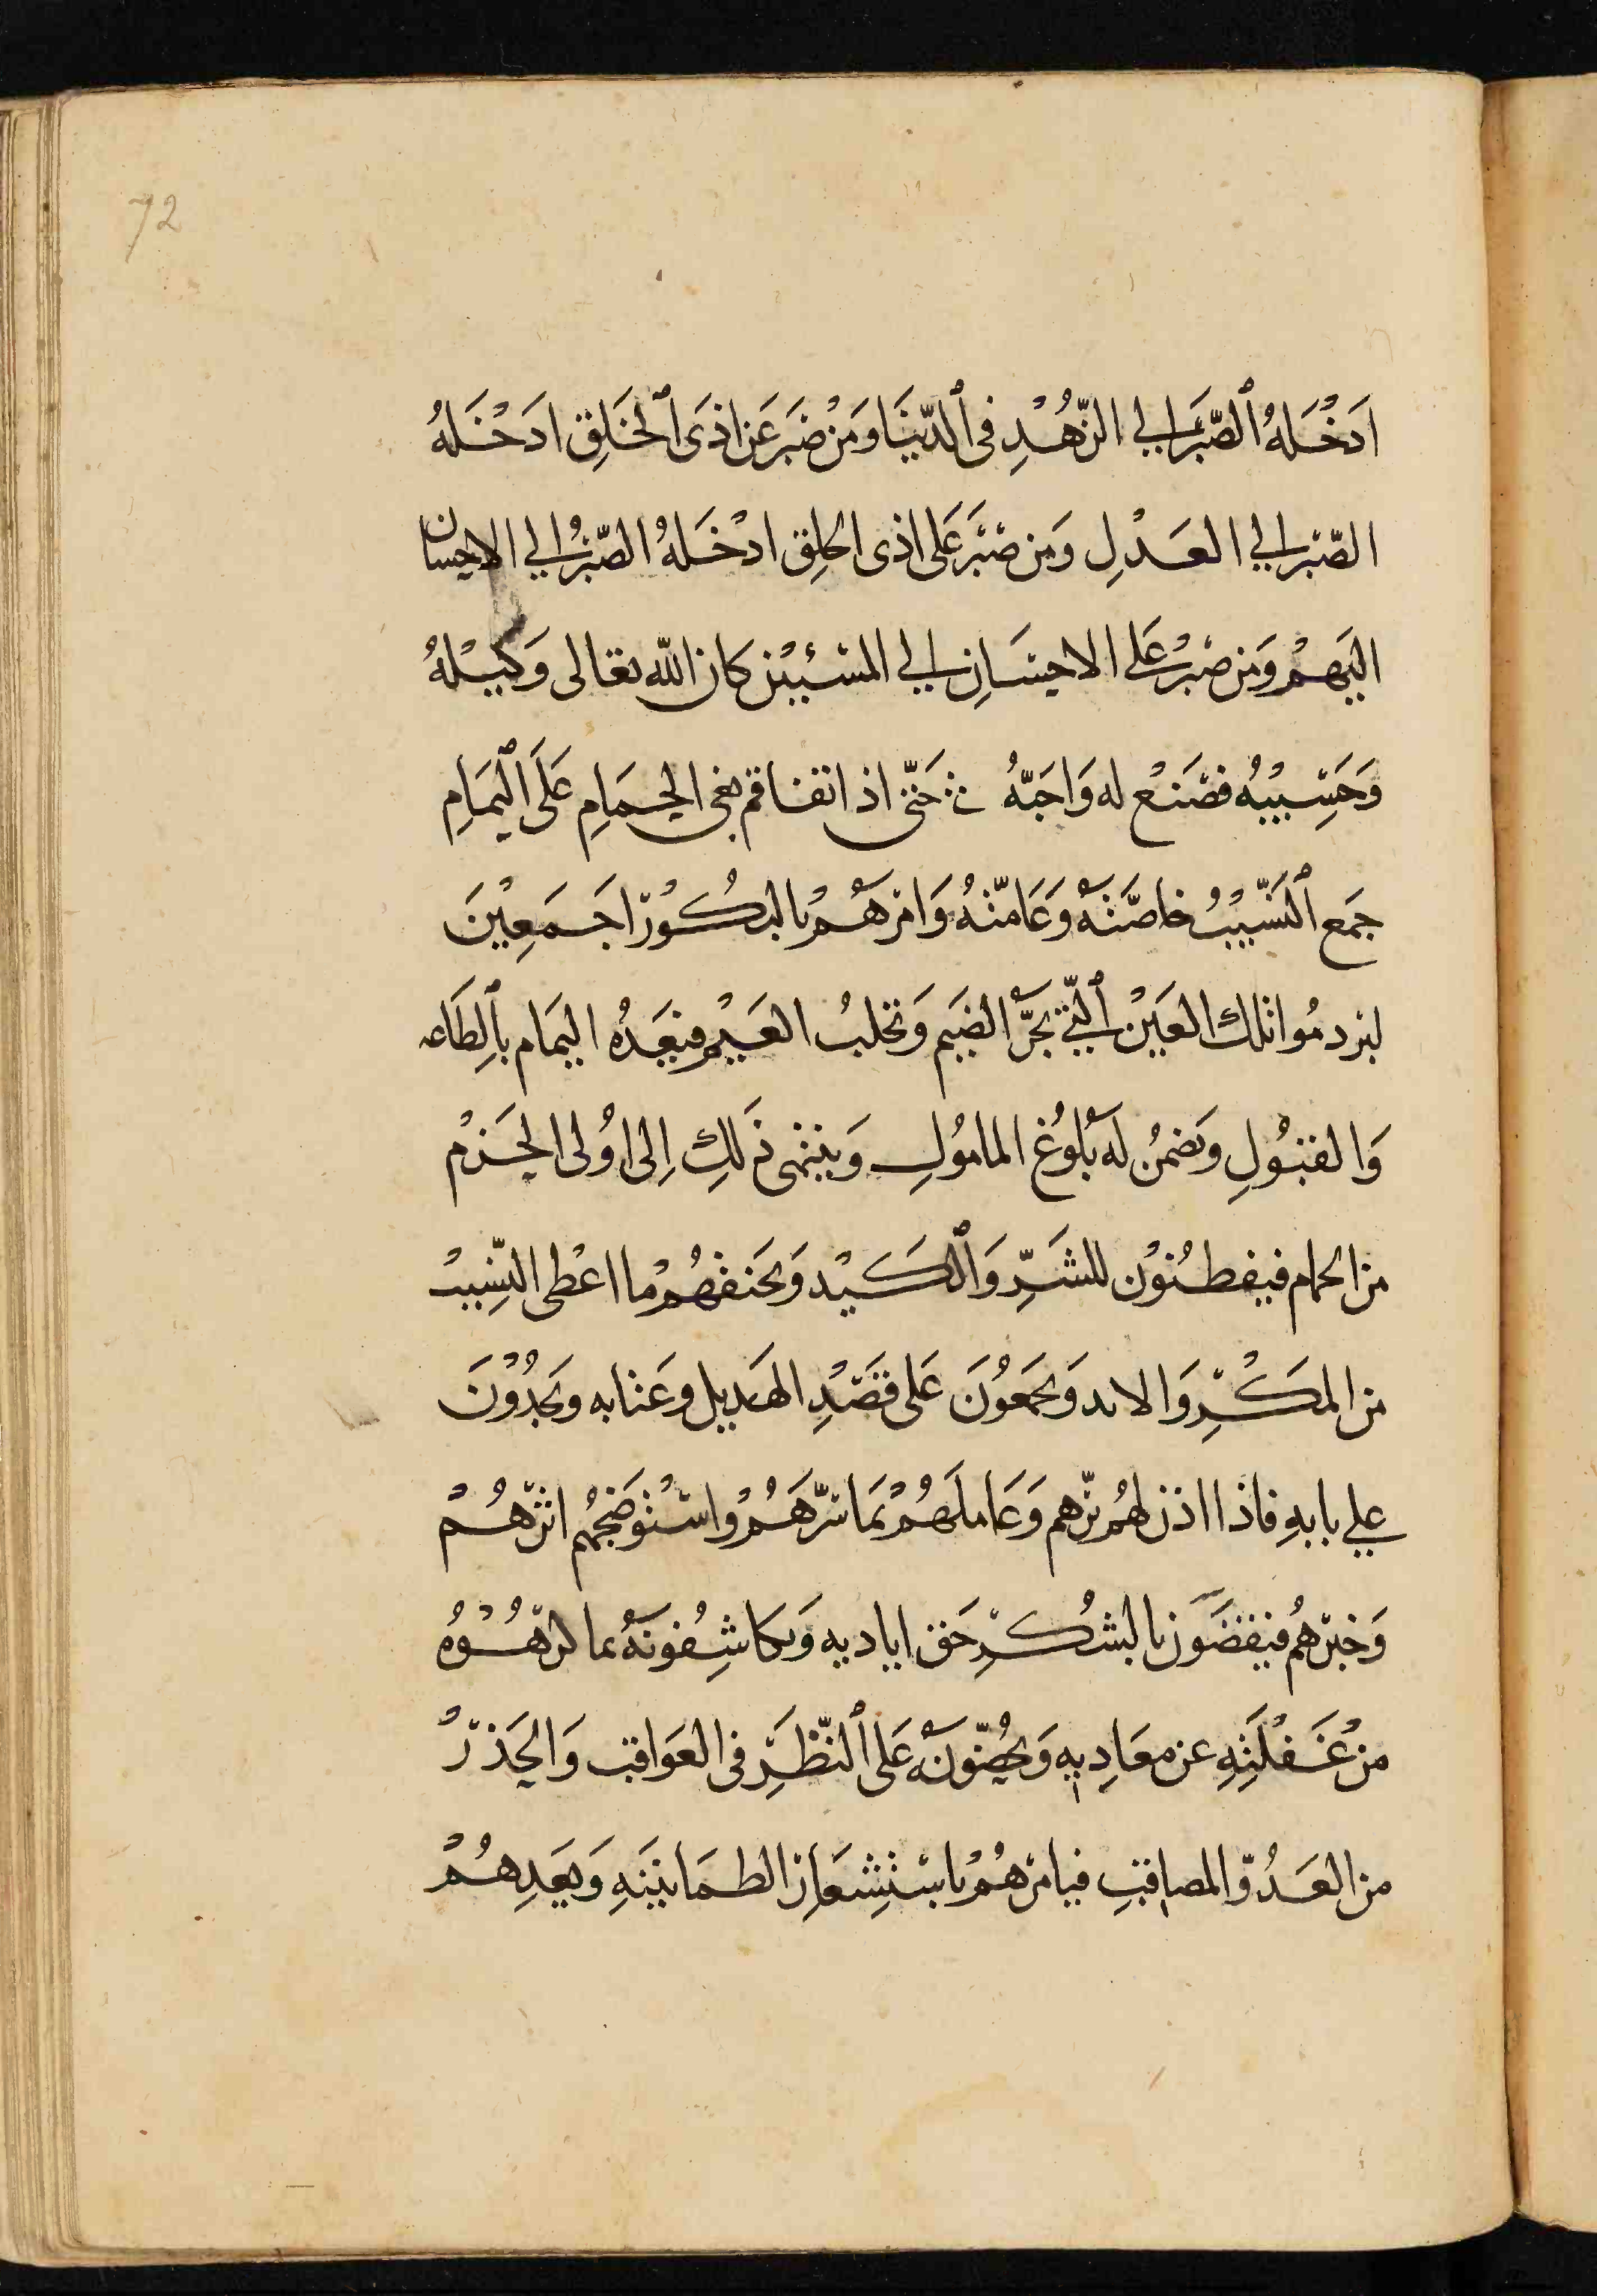 72
اَدْخَلَهُ ٱلصَّبْرُ الي الزّهْدِ فى ٱلدّنيَا وَمَنْ صَبَرَ عَن اذَى ٱلخَلقِ ادَخَلهُ
الصّبر الي العَدْلِ وَمِن صَبَرَ عَلى اذى الخلِق ادْخَلهُ الصّبرُ الي الاحِسان
اليَهمْ وَمَن صبَرَ عَلى الاحِسَانِ الي المسْئيْن كان الله تعَالى وَكيْلهُ
وَحَسِيبُه فصَنعْ له وَاحَبّهُ حَتّى اذ اتفاقم بغى الحمَامِ عَلَى ٱليمَامِ
جمَع ٱلنَّسِيْبُ خاصّتَهُ وَعَامّتهُ وَامَرهُمْ بالبكُوْر اجَمَعِيْنَ
ليَردمُوا تلك العَيْن ٱلتّى تجرّ الضيَم وَتجلبُ العَيْم فيَعَدُهُ اليمَام بٱلطَاعه
وَالقبُولِ وَيضمنُ له بُلوُغ المامُولِ وَينتمى ذَلكِ اِلى اُولى الحَزمْ
من الحمام فيفطنُوْن للشَرِّ وَٱلكَيْد وَيحَنفهُمْ ما اعْطى النّسِيبْ
من المكْرِ وَالايد وَيجمَعُونَ عَلى قصْدِ الهَديل وعَتابه وَيجدُوْنَ
علي بابهِ فاذا اذن لهُم برّهم وَعَاملَهُمْ بمَا سَرّهَمُ وْاسْتوْضَحهُم اثرّهُمْ
وَخبرهُم فيقضَوّن بالشكْرِ حَق اياديه وَيكاشِفونهُ بما كرهْوُهُ
مِنْ غَفْلَتِهِ عن معَادِيهِ وَيحُثّونه عَلى ٱلنّظَرِ فى العَوَاقبِ وَالحَذرْ
من العَدُوّ المصاقبِ فيامرهُمْ باسْتشِعَار الطمَانينَهِ وَيعَدِهُمْ